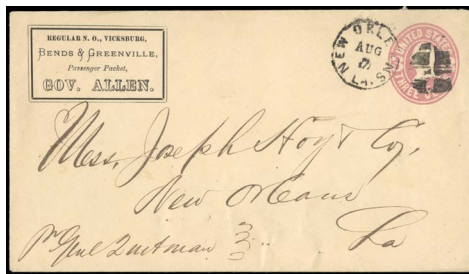 REGULAR N. O., VICKSBURG,
BENDS & GREENVILLE,
Passenger Packet,
GOV. ALLEN.
NEW ORLEANS
AUG
LA.
UNITED STATES
Mess, Joseph Hoy & Co,
New Orleans
La
pr Genl Quitman